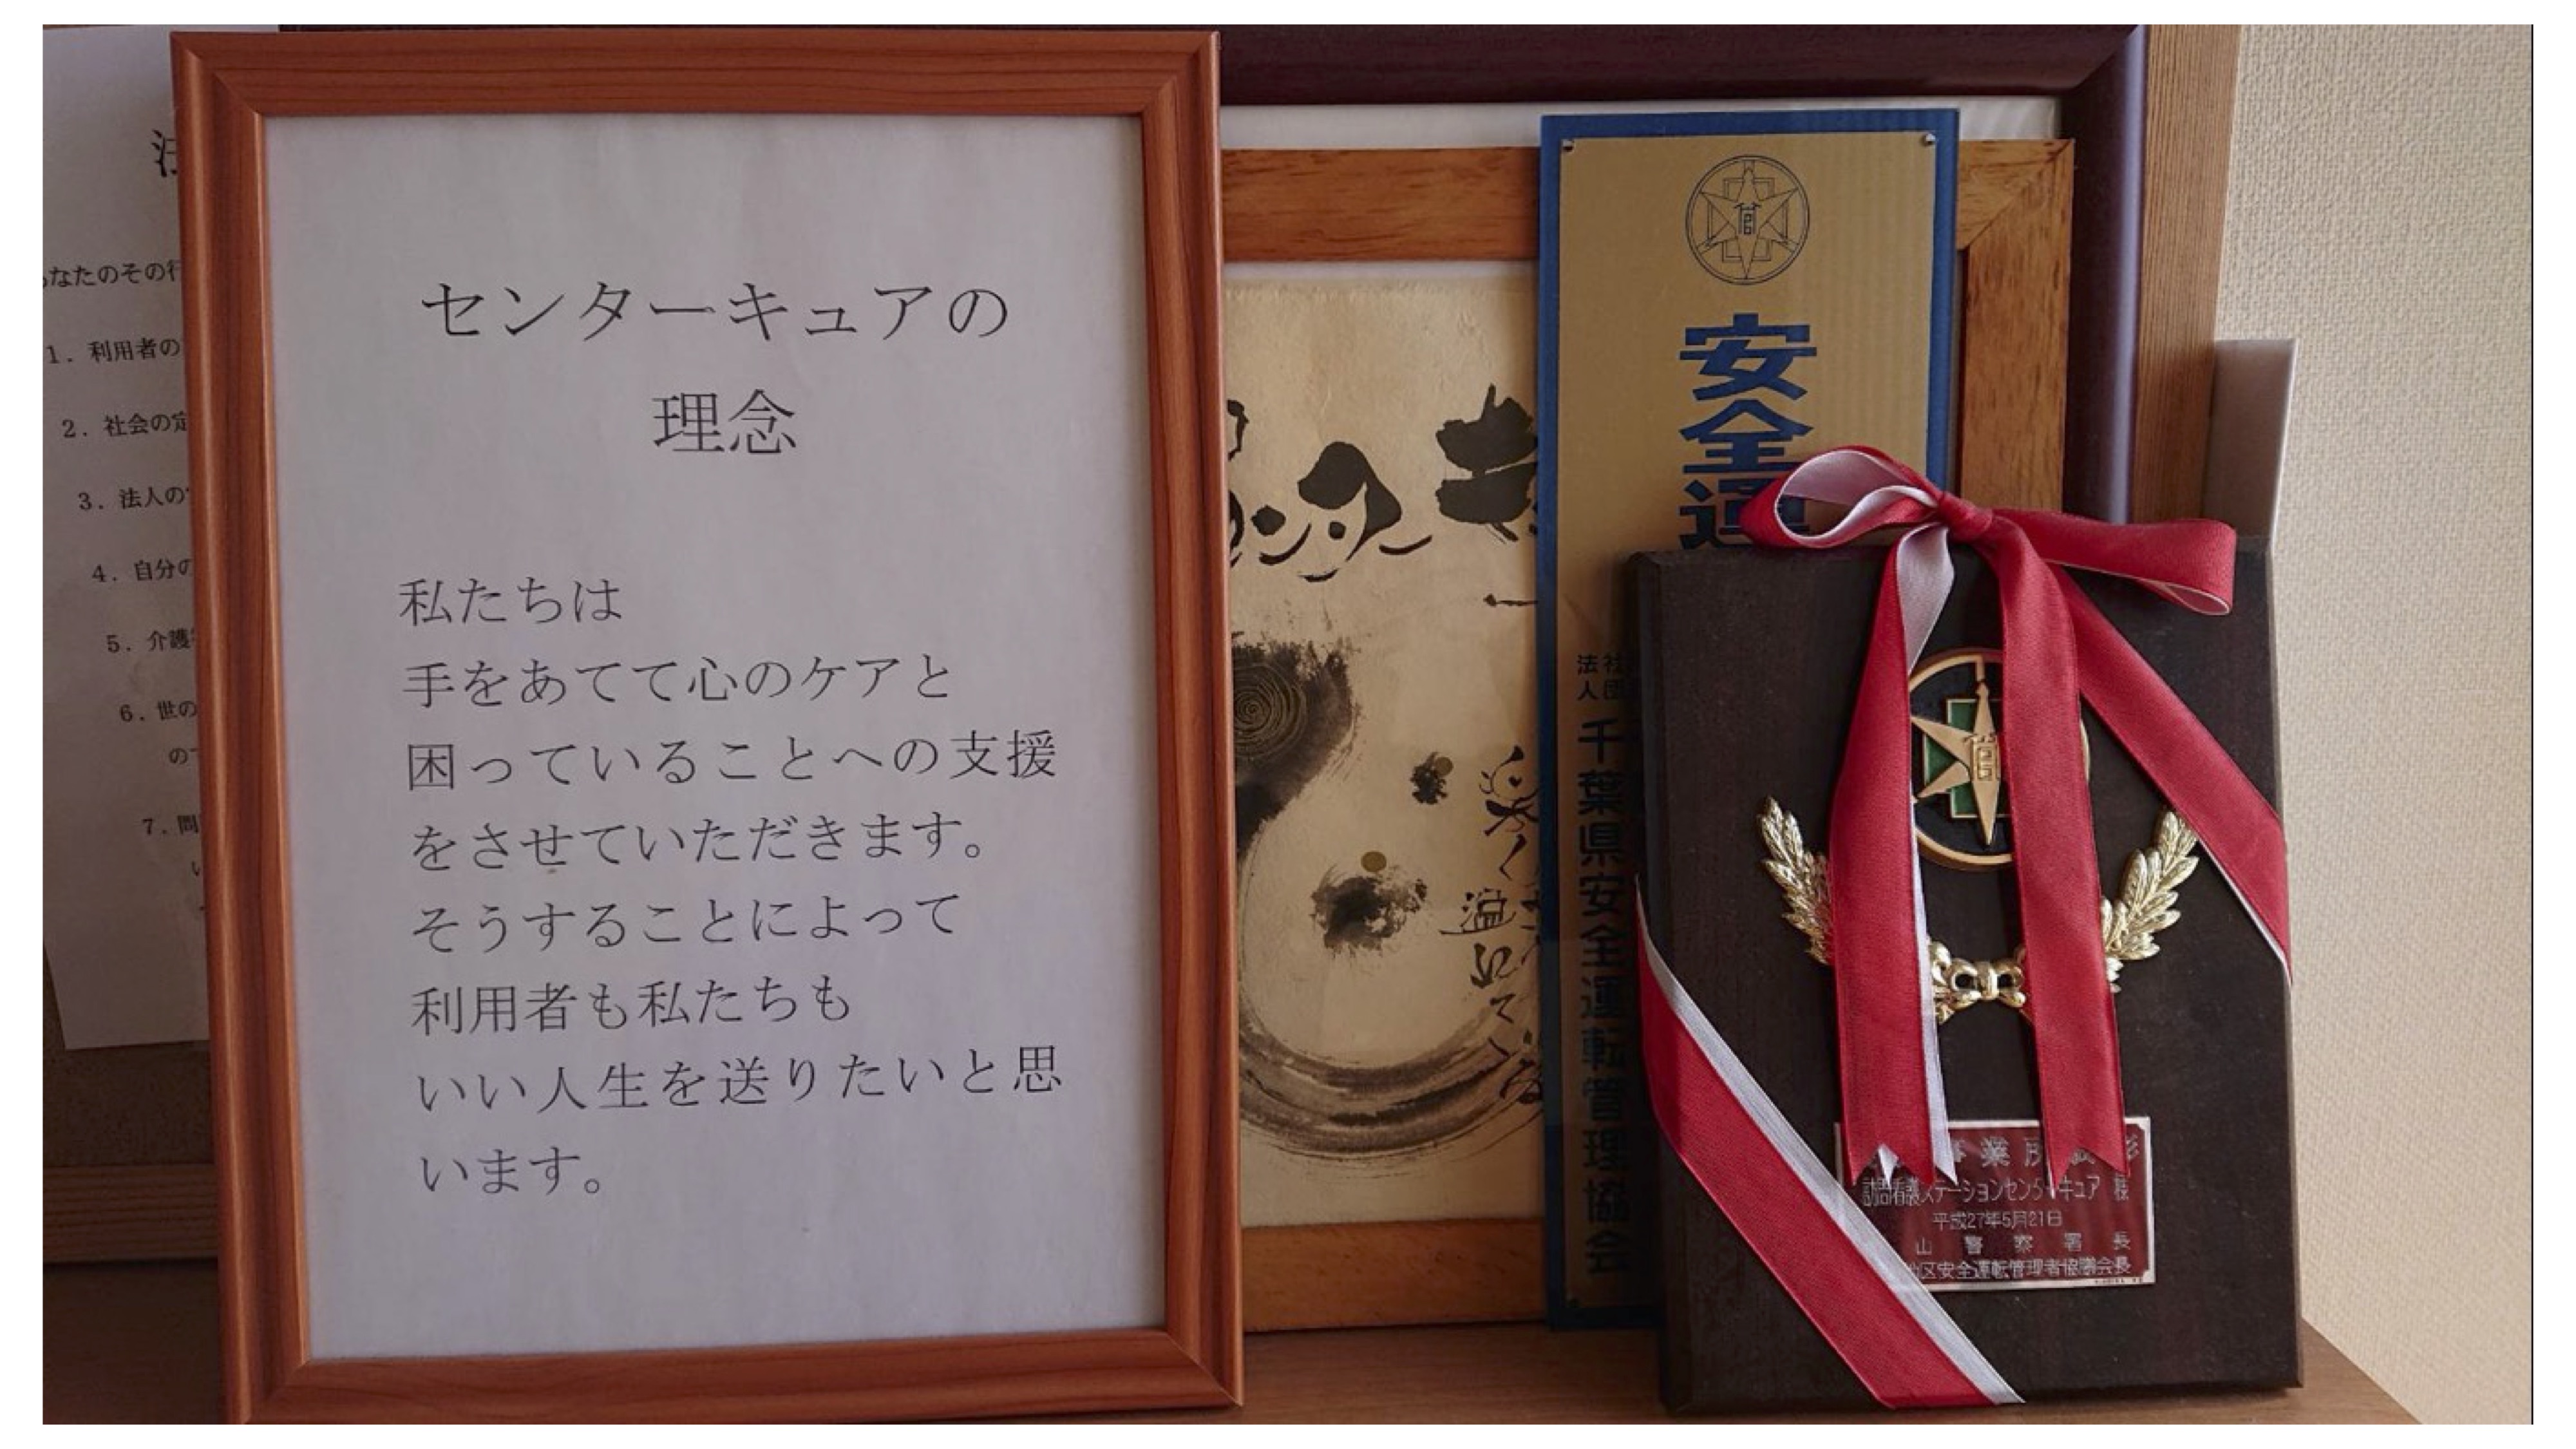 なたのその行
1. 利用者の
2. 社会の定
3. 法人の
4. 自分の
5. 介護
6. 世の
の
7. 問
センターキュアの
理念
私たちは
手をあてて心のケアと
困っていることへの支援
をさせていただきます。
そうすることによって
利用者も私たちも
いい人生を送りたいと思
います。
センター
楽
安全運
社団
法人
千葉県安全運転管理協会
業所
訪問看護ステーションセンターキュア 様
平成27年5月21日
山警察署長
地区安全運転管理者協議会長